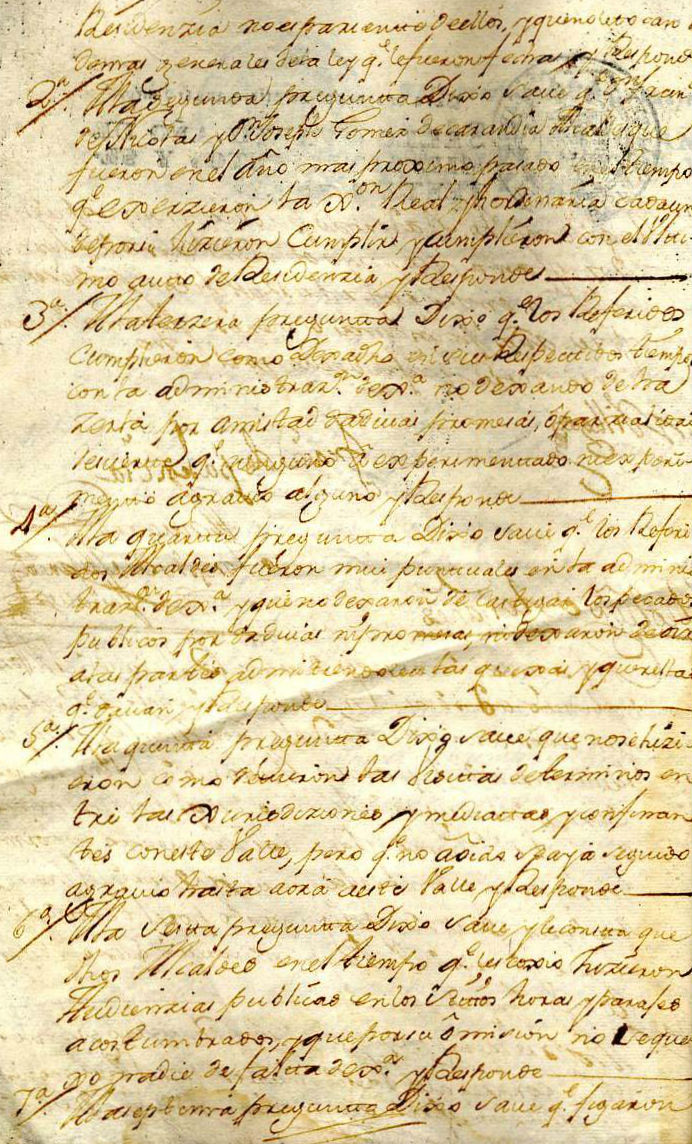 Residenzia no es pariente de ellos, y que no le tocan
demas generales de la ley q.e le fueron fechas y Responde
2.a/ A la segunda pregunta Dixo save q.e Dn fran
de Nicolas y Dn Joseph Gomez de carandia Alcaldes que
fueron en el año mas proximo pasado en el tiempo
q.e exerzieron la X.on Real y hordinaria cada un
de por si hizieron Cumplir y cumplieron con el Ulti
mo auto de Residenzia y Responde
3.a/ A la terzera pregunta Dixo q.e los Referidos
Cumplieron como Dexa dho en sus Respectivos tiempos
con la administraz.n de X.a no dexando de ha
zerla por amistad dadivas promesas, o parzialidad
de suerte q.e ninguno a experimentado ni experi
mento agravio alguno y Responde
4.a/ A la quarta pregunta Dixo save q.e los Referi
dos Alcaldes fueron mui puntuales en la adminis
traz.n de X.a y que no dexaron de castigar los pecados
publicos por dadivas ni promesas, ni dexaron de oir
a las partes admitiendo las quexas y querellas
q.e davan y Responde
5.a/ A la quinta pregunta Dixo save que no se hizi
eron como devieron las visitas de terminos en
tre las xurisdiziones ymediattas y confinan
tes con este Valle, pero q.e no a oido se aya seguido
agravio hasta aora a este Valle y Responde
6.a/ A la sesta pregunta Dixo save y le consta que
dhos Alcaldes en el tiempo q.e les toco hizieron
Audienzias publicas en los sitios horas y parajes
acostumbrados, y que por su omision no se que
xo nadie de falta de X.a y Responde
7.a/ A la septima pregunta Dixo save q.e